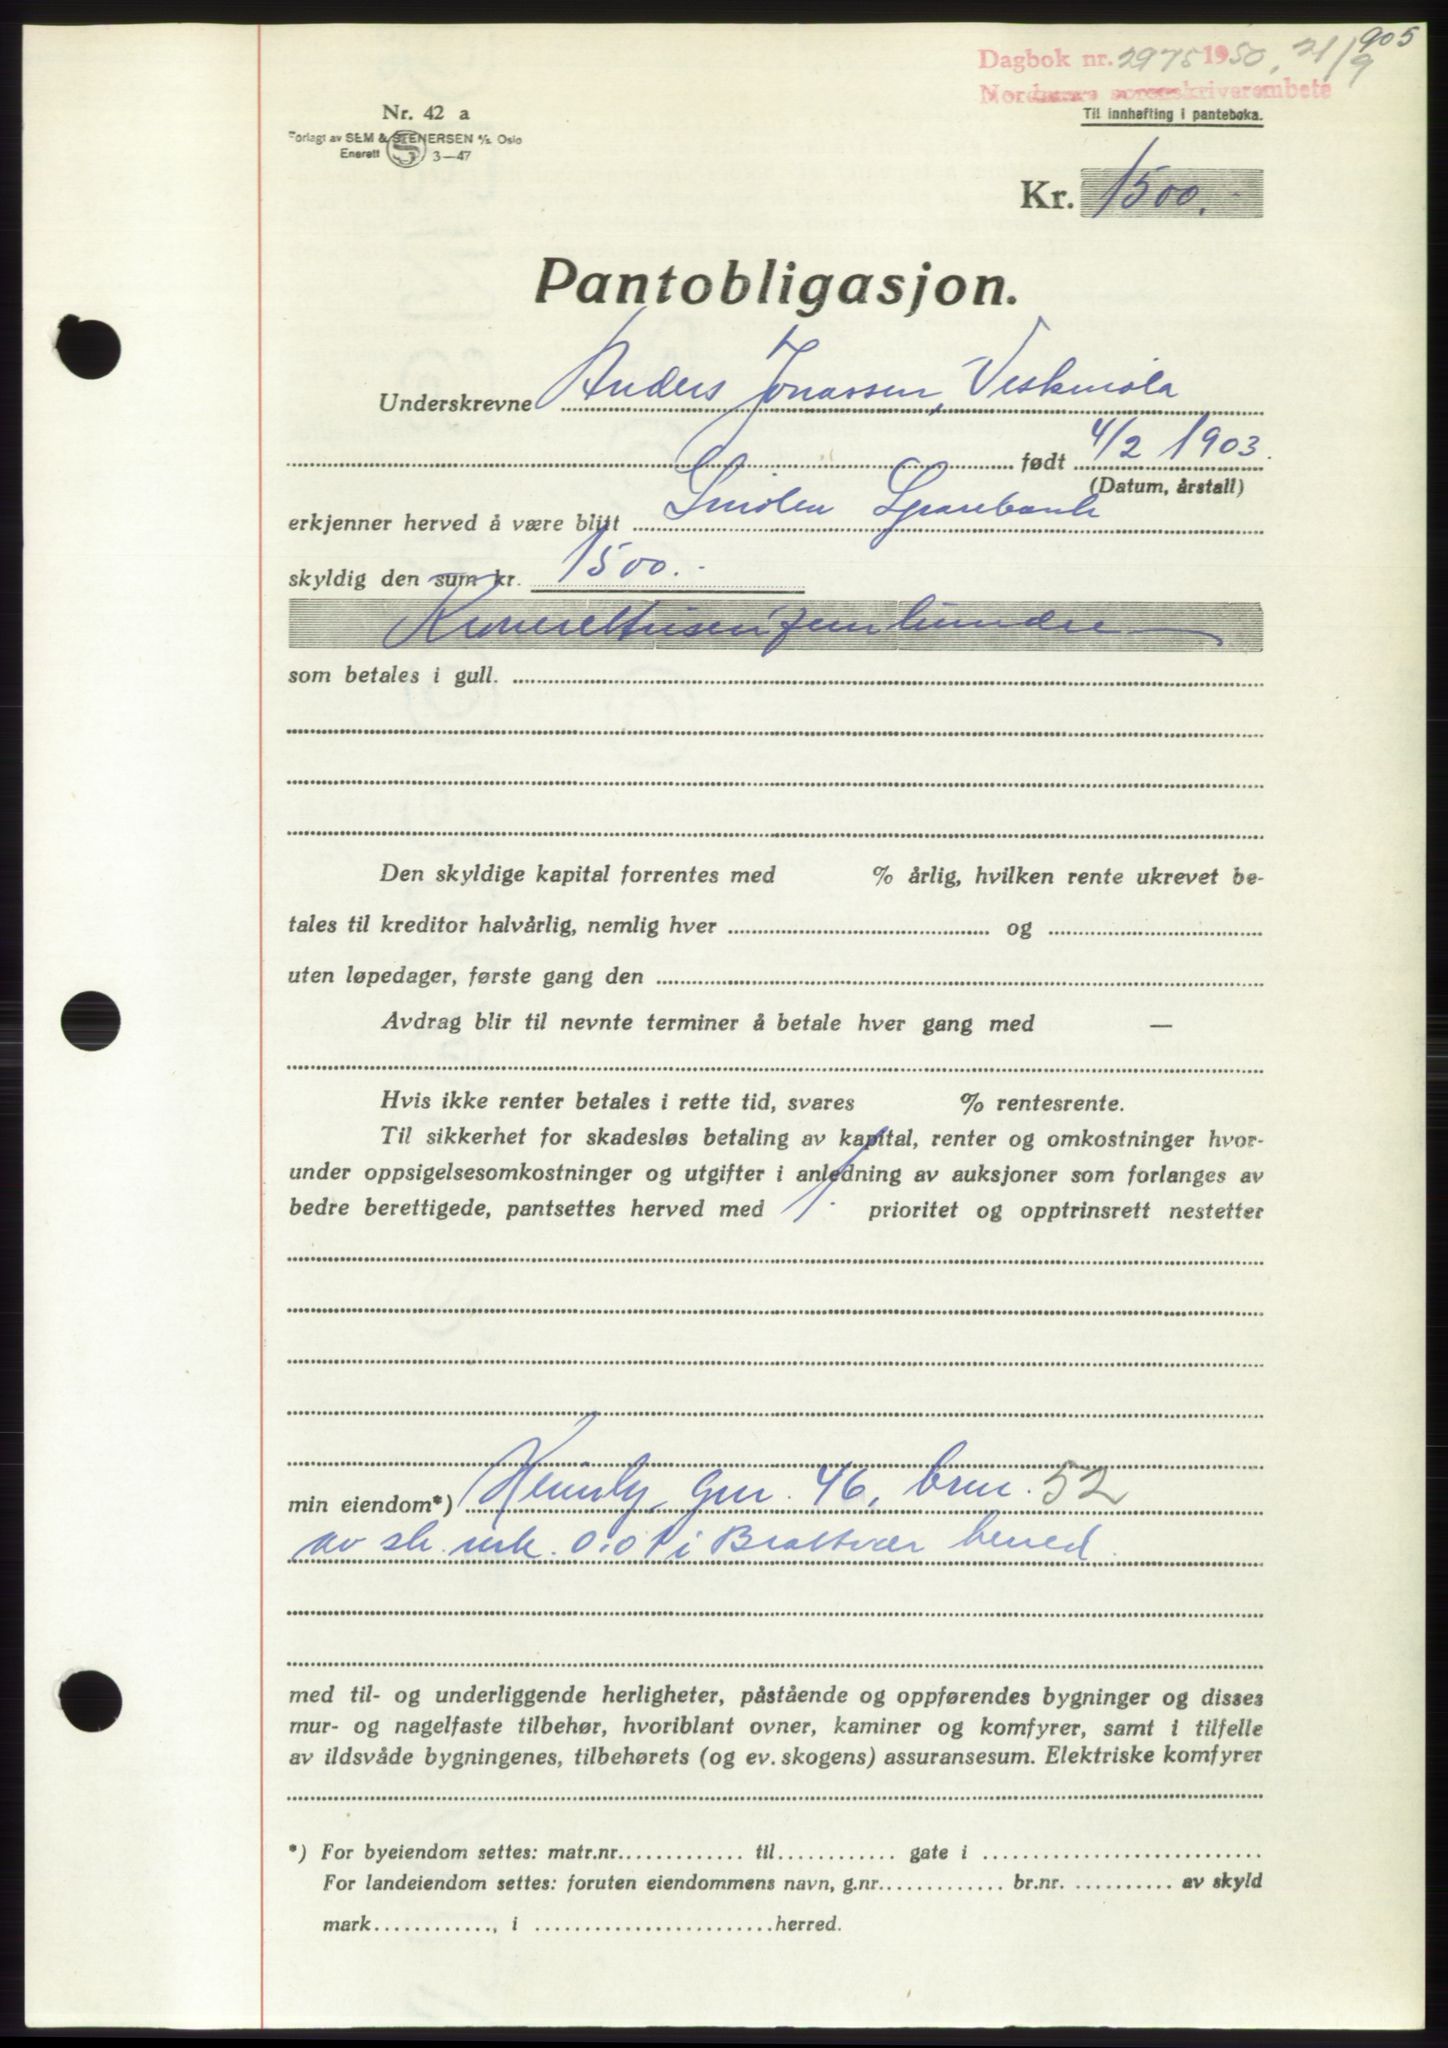 905
Dagbok nr. 2975 1950, 21/9
Nordmøre sorenskriverembete
Nr. 42 a
Til innhefting i panteboka.
Forlagt av SEM & STENERSEN A/S Oslo
Enerett S 3—47
Kr. 1500.-
Pantobligasjon.
Underskrevne Anders Jonassen, Veskmøla
født 4/2 1903.
(Datum, årstall)
erkjenner herved å være blitt Smølen Sparebank
skyldig den sum kr. 1500.-
Kronerettusenfemhundre
som betales i gull.
Den skyldige kapital forrentes med % årlig, hvilken rente ukrevet be-
tales til kreditor halvårlig, nemlig hver og
uten løpedager, første gang den
Avdrag blir til nevnte terminer å betale hver gang med —
Hvis ikke renter betales i rette tid, svares % rentesrente.
Til sikkerhet for skadesløs betaling av kapital, renter og omkostninger hvor-
under oppsigelsesomkostninger og utgifter i anledning av auksjoner som forlanges av
bedre berettigede, pantsettes herved med 1. prioritet og opptrinsrett nestetter
min eiendom*) Heimly, gnr. 46, brnr. 52
av sk. mrk. 0.01 i Brattvær herred.
med til- og underliggende herligheter, påstående og oppførendes bygninger og disses
mur- og nagelfaste tilbehør, hvoriblant ovner, kaminer og komfyrer, samt i tilfelle
av ildsvåde bygningenes, tilbehørets (og ev. skogens) assuransesum. Elektriske komfyrer
*) For byeiendom settes: matr.nr. til gate i
For landeiendom settes: foruten eiendommens navn, g.nr. br.nr. av skyld
mark , i herred.